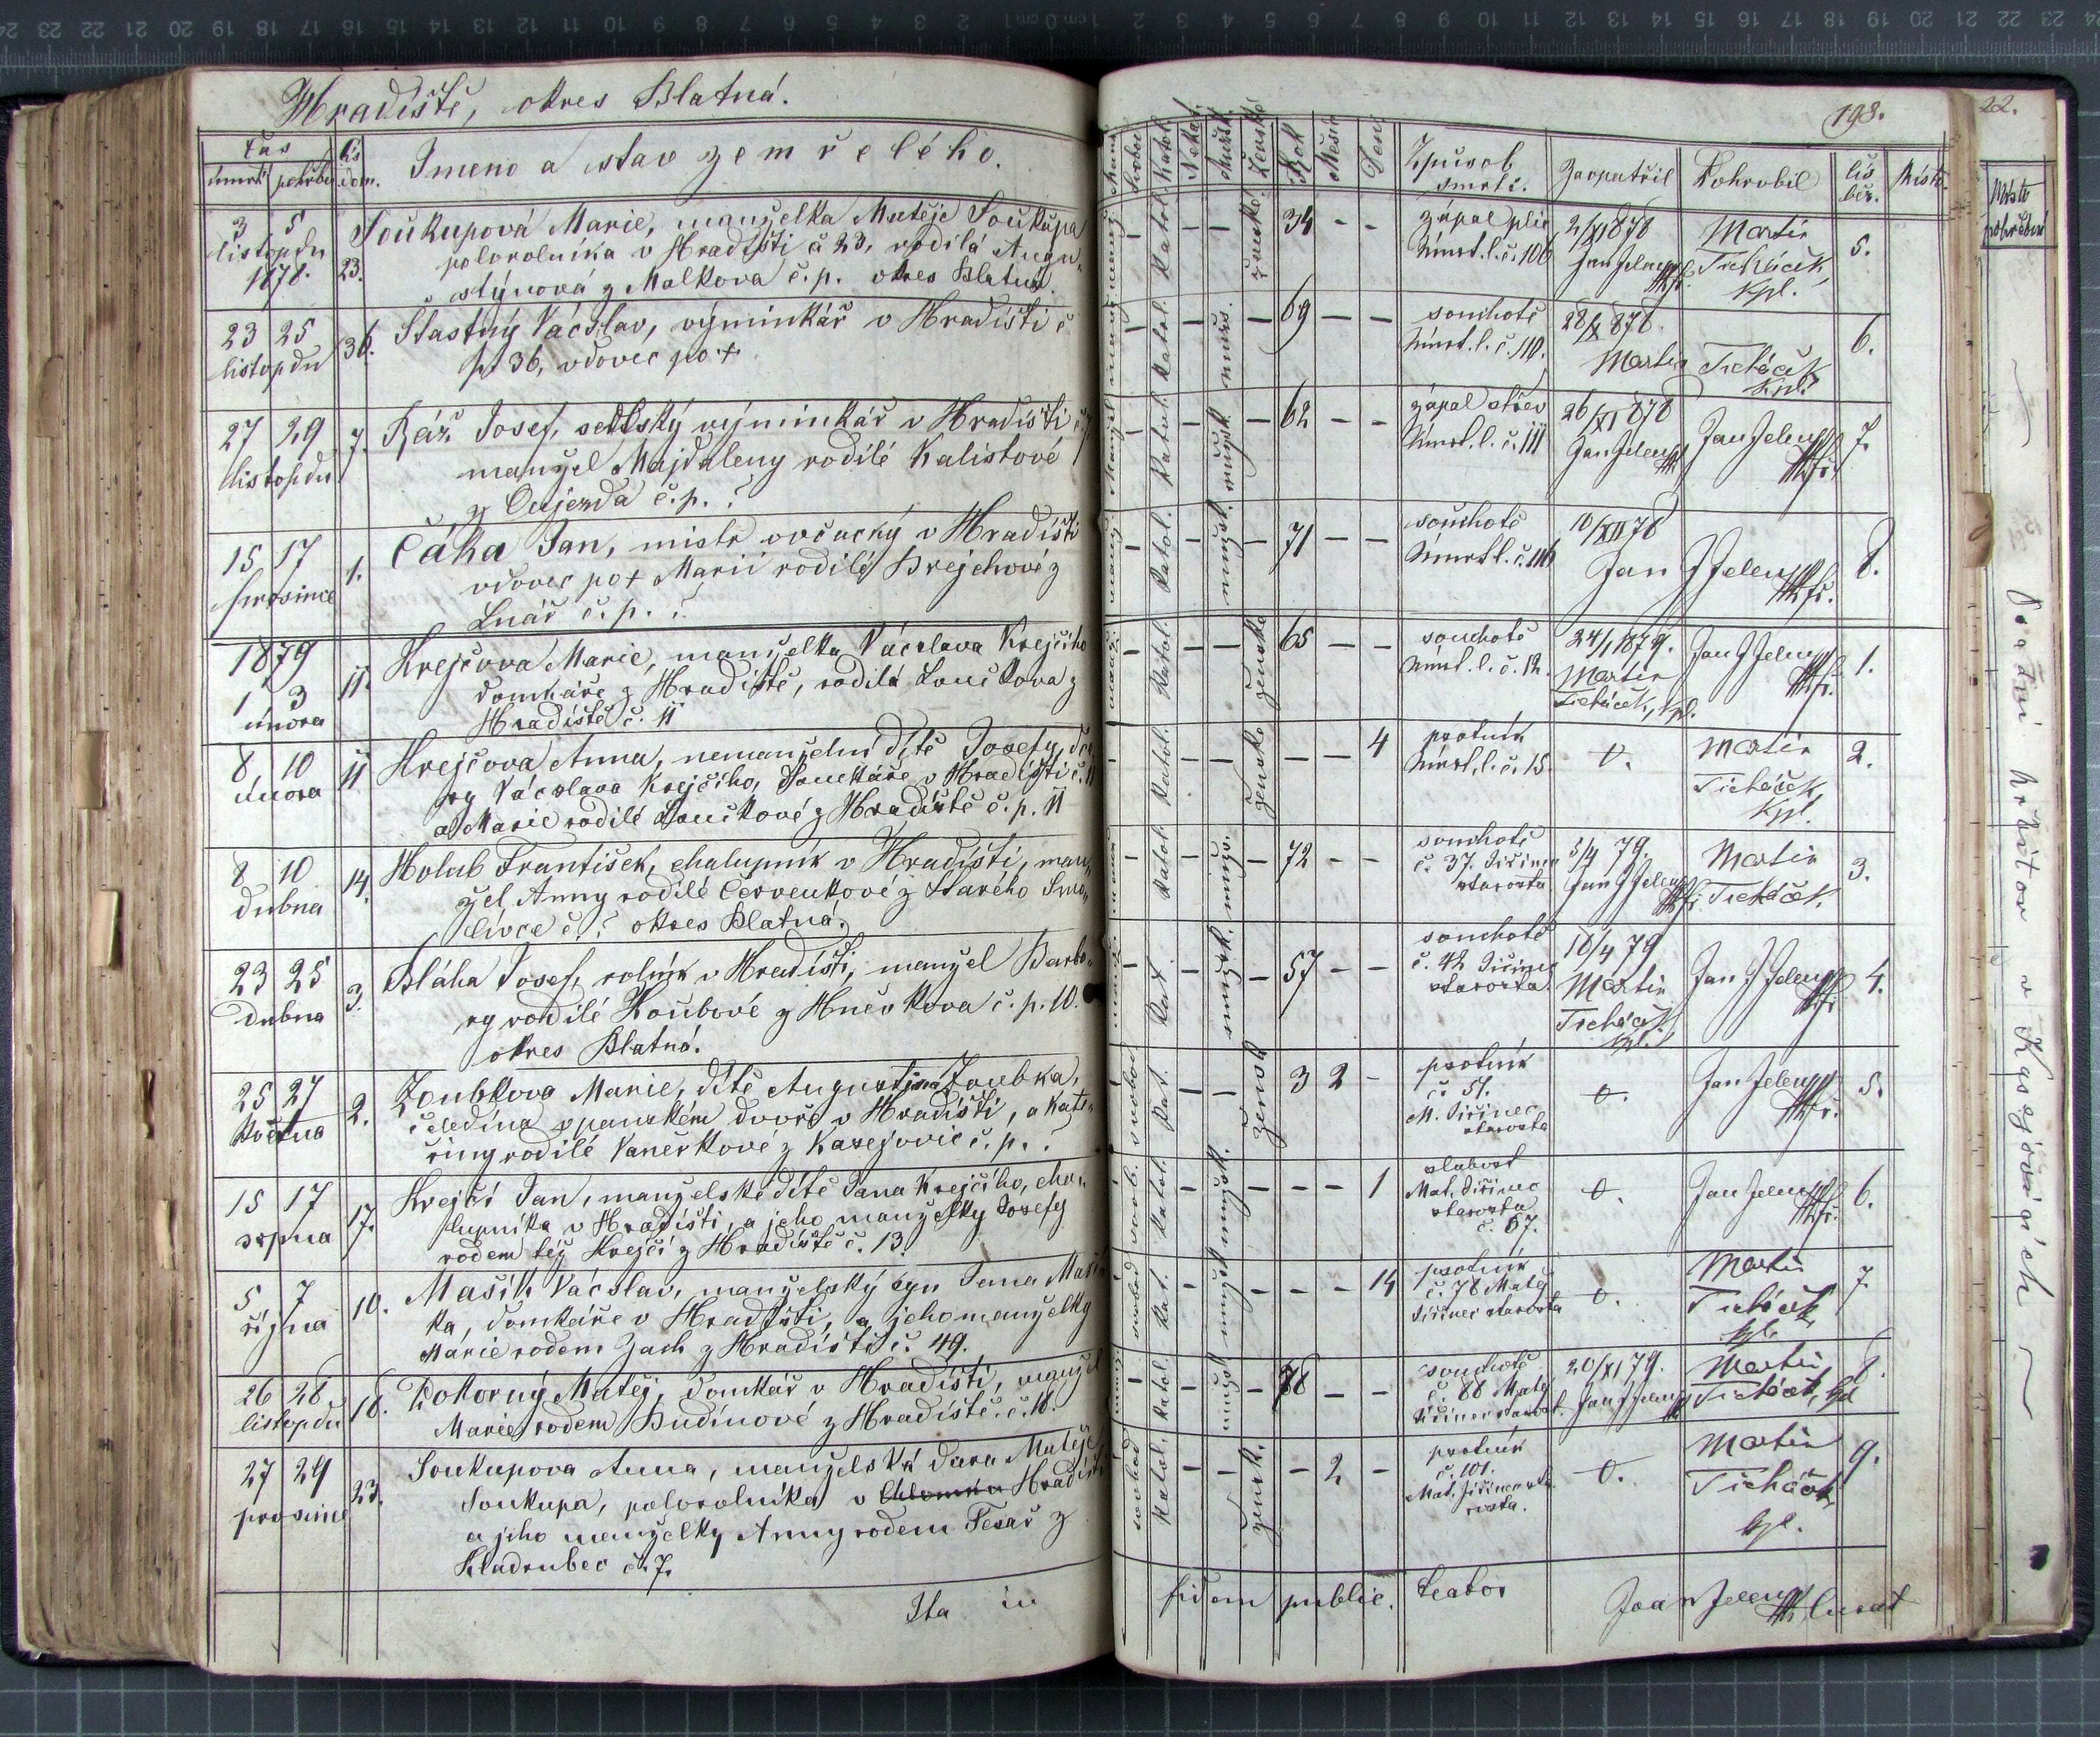 Hradiště, okres Blatná.
198.
22.
Čas
úmrtí pohřbu
čís dom.
Jmeno a stav zemřelého.
Katol.
Nekat.
Mužsk.
Ženské
Rok
Měsíc
Den
Způsob smrti.
Zaopatřil
Pohrobil
čís běž.
Místo
Místo pohřbení
3 5
listopdu
1878.
23.
Soukupová Marie, manželka Matěje Soukupa
polorolníka v Hradišti č 23, rodilá Augu-
stýnová z Malkova č. p. okres Blatná.
Katol. žensk. 34 - -
zápal plic
Úmrt. l. č. 106
2/XI 1878
Jan Jelen
Martin
Ticháček
kpl.
5.
23 25
listopdu
36.
Stastný Václav, výminkář v Hradišti č
p. 36, vdovec po +
Katol. 69 - -
souchotě
Úmrt. l. č. 110.
28/X 878
Martin Ticháček
kpl.
6.
27 29
listopdu
7.
Ráž Josef, sedlský výminkář v Hradišti č 7
manžel Majdaleny rodilé Kalistové
z Oujezda č. p. ?
Katol. mužsk. 62 - -
zápal střev
Úmrt. l. č. 111
26/XI 878
Jan Jelen
Jan Jelen
7.
15 17
prosince
1.
Čáka Jan, mistr ovčacký v Hradišti
vdovec po + Marii rodilé Brejchové z
Lnář č. p. ?
Katol. mužsk. 71 - -
souchotě
Úmrt l. č. 116
10/XII 78
Jan J Jelen
8.
1879
1 3
února
11.
Krejčova Marie, manželka Václava Krejčího
domkáře z Hradiště, rodilá Loučkova z
Hradiště č. 11
Katol. ženská 65 - -
souchotě
Úmrt. l. č. 12.
24/1 1879.
Martin
Ticháček, kpl.
Jan J Jelen
1.
8, 10
února
11
Krejčova Anna, nemanželní dítě Josefy, dce
ry Václava Krejčího, domkáře v Hradišti č. 11
a Marie rodilé Loučkové z Hradiště č. p. 11
Katol. ženská - - 4
psotník
Úmrt. l. č. 15.
0.
Martin
Ticháček,
kpl.
2.
8 10
dubna
14.
Holub František, chalupník v Hradišti, man-
žel Anny rodilé Červenkové z Starého Smo-
livce č. ? okres Blatná.
Katol. mužs. 72 - -
souchotě
č. 37. Jiřinec
starosta
5/4 79.
Jan J Jelen
Martin
Ticháček.
3.
23 25
dubna
3.
Bláha Josef, rolník v Hradišti, manžel Barbo-
ry rodilé Koubové z Hněvkova č. p. 10.
okres Blatná.
Kat. mužsk. 57 - -
souchotě
č. 42 Jiřinec
starosta
16/4 79
Martin
Ticháček
kpl.
Jan J Jelen
4.
25 27
května
2.
Zoubkova Marie, dítě Augustina Zoubka,
čeledína v panském dvoře v Hradišti, a Kate-
řiny rodilé Vaněrkové z Kasejovic č. p. ?
svobod Kat. žensk 3 2 -
psotník
č. 51.
M. Jiřinec
starosta
0.
Jan Jelen
5.
15 17
srpna
17.
Krejčí Jan, manželské dítě Jana Krejčího, cha-
lupníka v Hradišti, a jeho manželky Josefy
rodem též Krejčí z Hradiště č. 13.
svob. Katol. mužsk. - - 1
slabost
Mat. Jiřinec
starosta
č. 67.
0.
Jan Jelen
6.
5 7
října
10.
Mašík Václav, manželský syn Jana Maší-
ka, domkáře v Hradišti, a jeho manželky
Marie rodem Zach z Hradiště č. 49.
svobod Kat. mužsk - - 14
psotník
č. 78 Matěj
Jiřinec starosta
0.
Martin
Ticháček
kpl.
7.
26 28
listopdu
18.
Pokorný Matěj, domkář v Hradišti, manžel
Marie rodem Budínové z Hradiště č. 18.
Katol. mužsk 78 - -
souchotě
č. 88 Matěj
Jiřinec starost.
20/XI 79.
Jan J Jelen
Martin
Ticháček, kpl
8.
27 29
prosince
23.
Soukupova Anna, manželská dcera Matěje
Soukupa, polorolníka v Hradišti
a jeho manželky Anny rodem Tesař z
Kladrubec č. 7.
svobod Katol. žensk. - 2 -
psotník
č. 101.
Mat. Jiřinec sta-
rosta.
0.
Martin
Ticháček
kpl.
9.
Ita in fidem public. testor Joan Jelen Curat
Osadní hřbitov v Kasejovicích